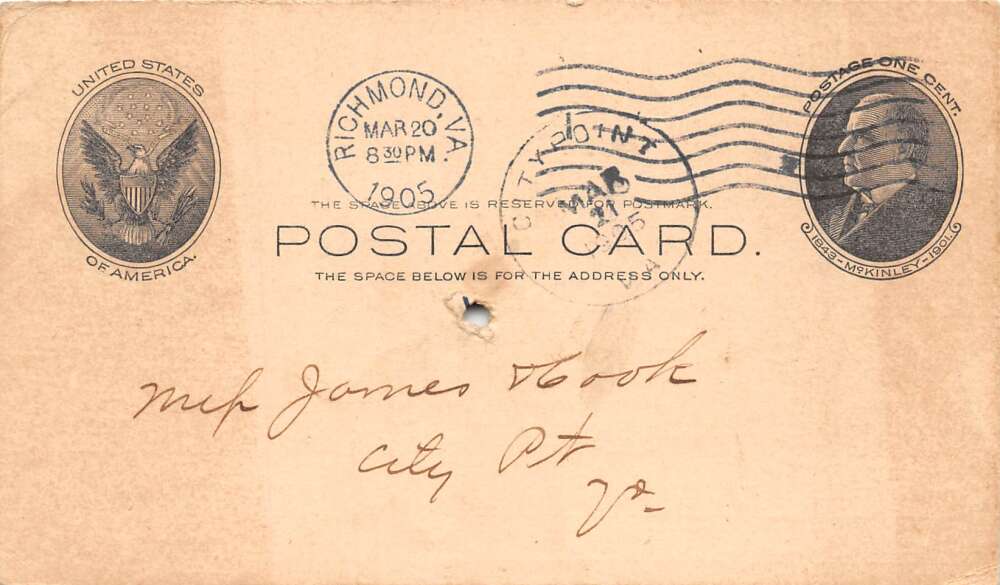 UNITED STATES
OF AMERICA.
RICHMOND, VA.
MAR 20
8 30 PM
1905
CITY POINT
MAR
21
1905
VA
POSTAGE ONE CENT.
1843-McKINLEY-1901.
THE SPACE ABOVE IS RESERVED FOR POSTMARK.
POSTAL CARD.
THE SPACE BELOW IS FOR THE ADDRESS ONLY.
James
City Pt
Va